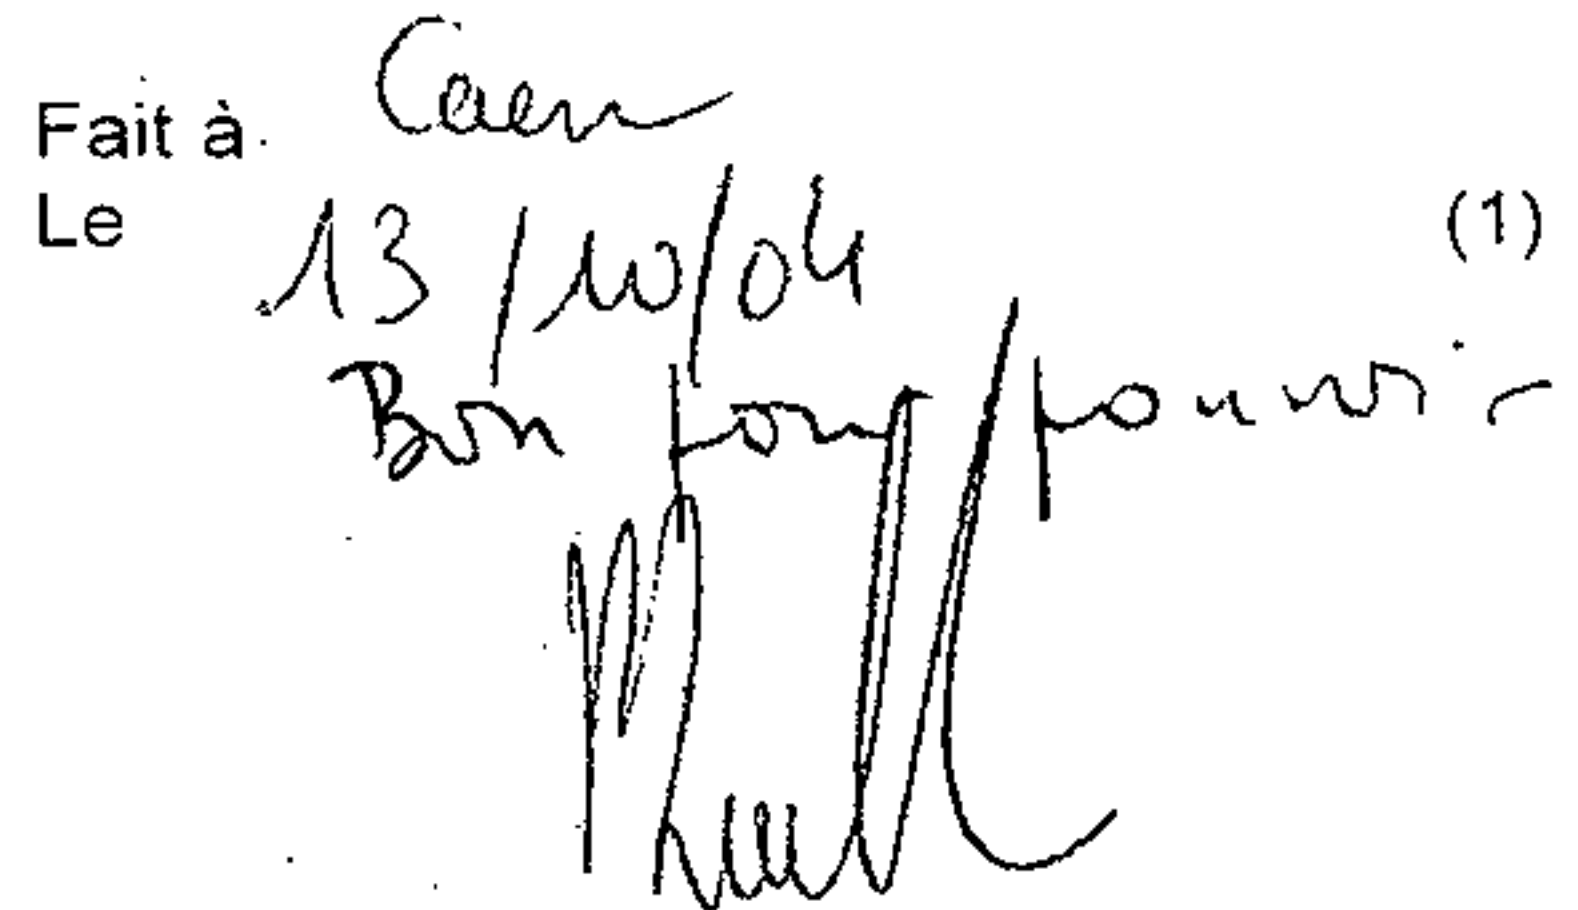 Fait à Caen
Le 13/10/04 (1)
Bon pour pouvoir